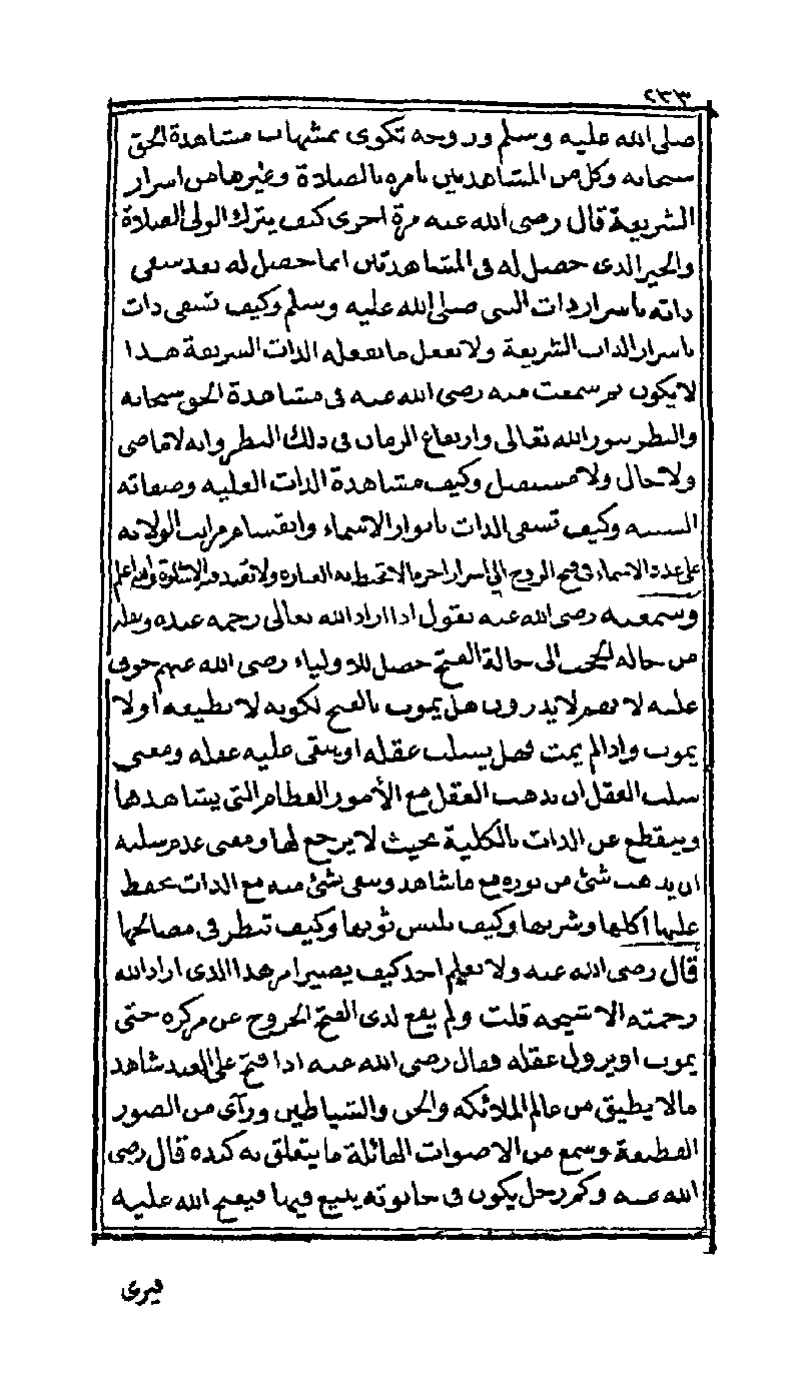 ٢٣٣
صلى الله عليه وسلم وروحه تكون بمشهاب مشاهدة الحق
سبحانه وكل من المشاهدتين يامره بالصلاة وغيرها من اسرار
الشريعة قال رضى الله عنه مرة اخرى كيف يترك الولى الصلاة
والخير الذى حصل له فى المشاهدتين انما حصل له بعد سقى
ذاته باسرار ذات النبى صلى الله عليه وسلم وكيف تسقى ذات
باسرار الذات الشريفة ولا تفعل ما تفعله الذات الشريفة هذا
لا يكون ثم سمعت منه رضى الله عنه فى مشاهدة الحق سبحانه
والنظر بنور الله تعالى وارتفاع الزمان فى ذلك النظر وانه لا ماضى
ولا حال ولا مستقبل وكيف مشاهدة الذات العلية وصفاته
السنية وكيف تسقى الذات بانوار الاسماء وانقسام مراتب الولاية
على عدد الاسماء فى فتح الروح الى اسرار اخر مما لا تحيط به العبارة ولا تفيد فيه الاشارة والله اعلم
وسمعته رضى الله عنه يقول اذا اراد الله تعالى رحمة عبده ونقله
من حالة الحجب الى حالة الفتح حصل للاولياء رضى الله عنهم خوف
عليه لانهم لا يدرون هل يموت بالفتح لكونه لا يطيقه او لا
يموت واذا لم يمت فهل يسلب عقله او يبقى عليه عقله ومعنى
سلب العقل ان يذهب العقل مع الأمور العظام التى يشاهدها
وينقطع عن الذات بالكلية بحيث لا يرجع لها ومعنى عدم سلبه
ان يذهب شئ من نوره مع ما شاهد ويبقى شئ منه مع الذات يحفظ
عليها اكلها وشربها وكيف تلبس ثوبها وكيف تنظر فى مصالحها
قال رضى الله عنه ولا يعلم احد كيف يصير امر هذا الذى اراد الله
رحمته الا شيخه قلت ولم يقع لذى الفتح الخروج عن مركزه حتى
يموت او يزول عقله فقال رضى الله عنه اذا فتح على العبد شاهد
مالا يطيق من عالم الملائكة والجن والشياطين ورآى من الصور
الفظيعة وسمع من الاصوات الهائلة ما يتفلق به كبده قال رضى
الله عنه وكم رجل يكون فى حانوته يبيع فيها فيفتح الله عليه
فيرى